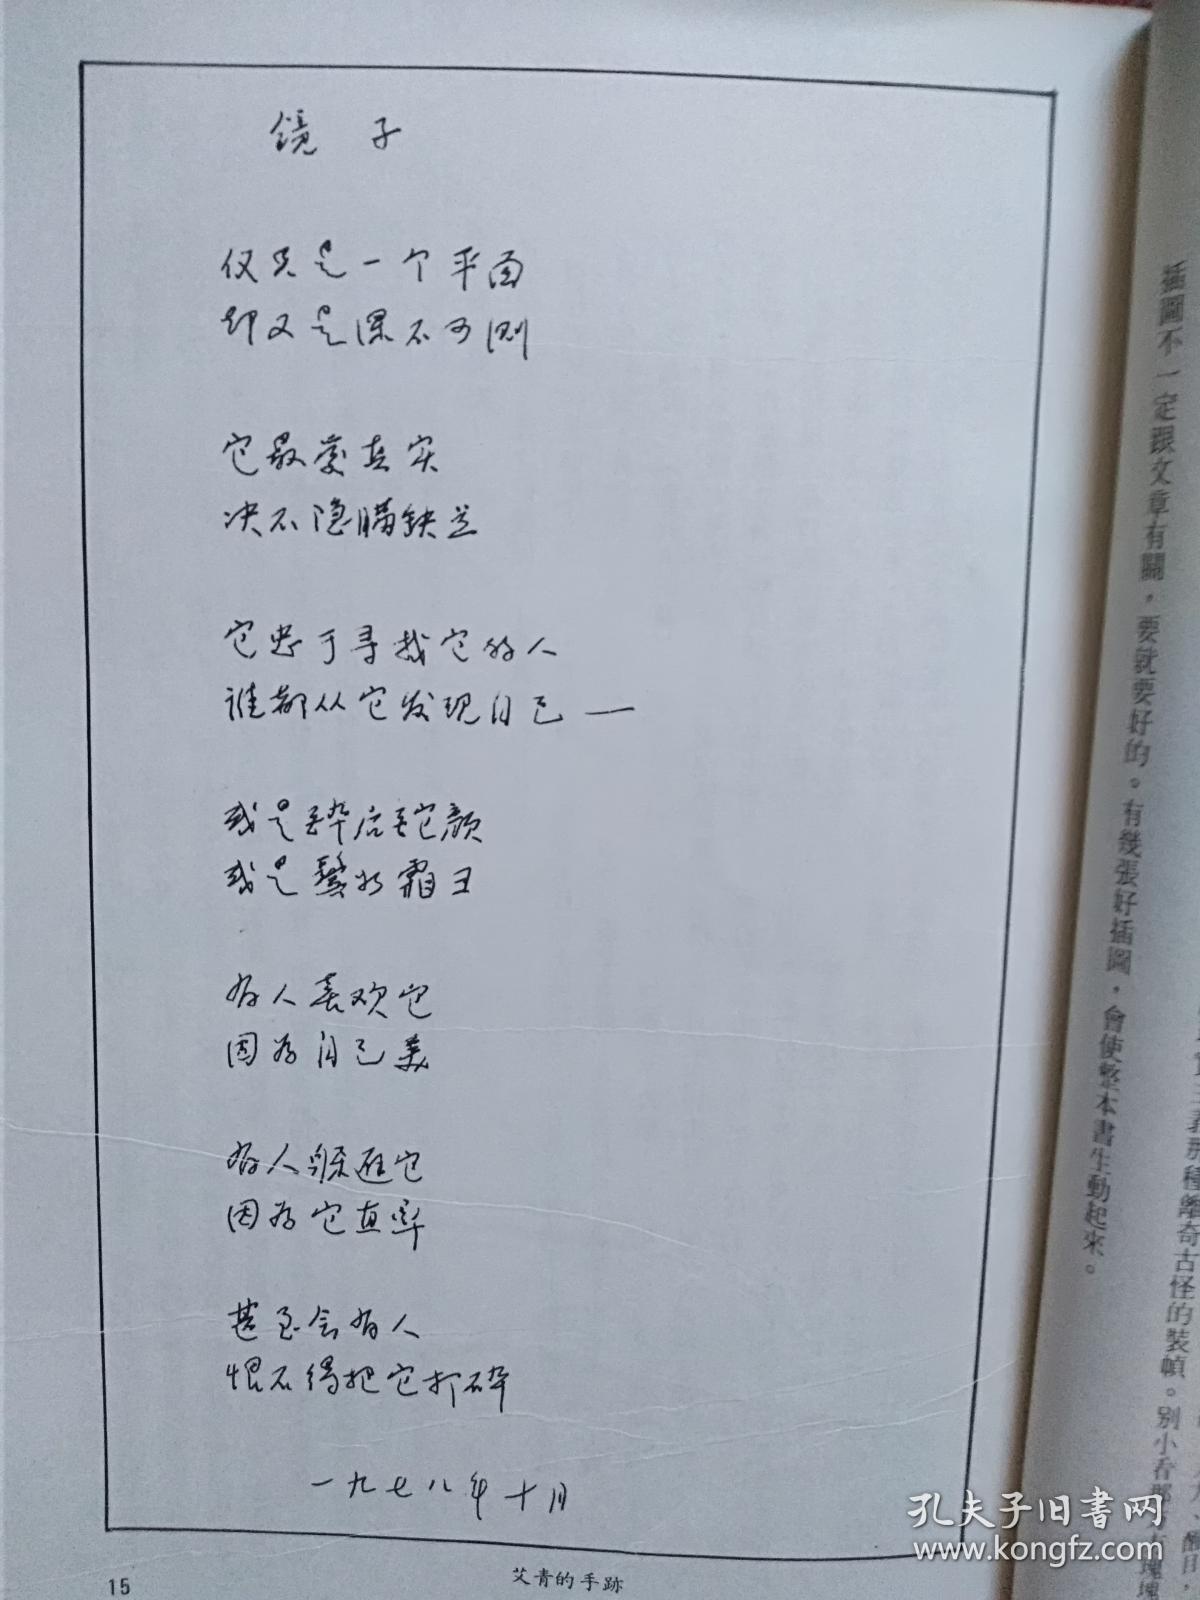 镜子
仅只是一个平面
却又是深不可测
它最爱真实
决不隐瞒缺点
它忠于寻找它的人
谁都从它发现自己——
或是醉后酡颜
或是鬓如霜雪
有人喜欢它
因为自己美
有人躲避它
因为它直率
甚至会有人
恨不得把它打碎
一九七八年十月
艾青的手跡
15
插圖不一定跟文章有關，要就要好的。有幾張好插圖，會使整本書生動起來。
那種離奇古怪的裝幀。别小看那
孔夫子旧书网
www.kongfz.com